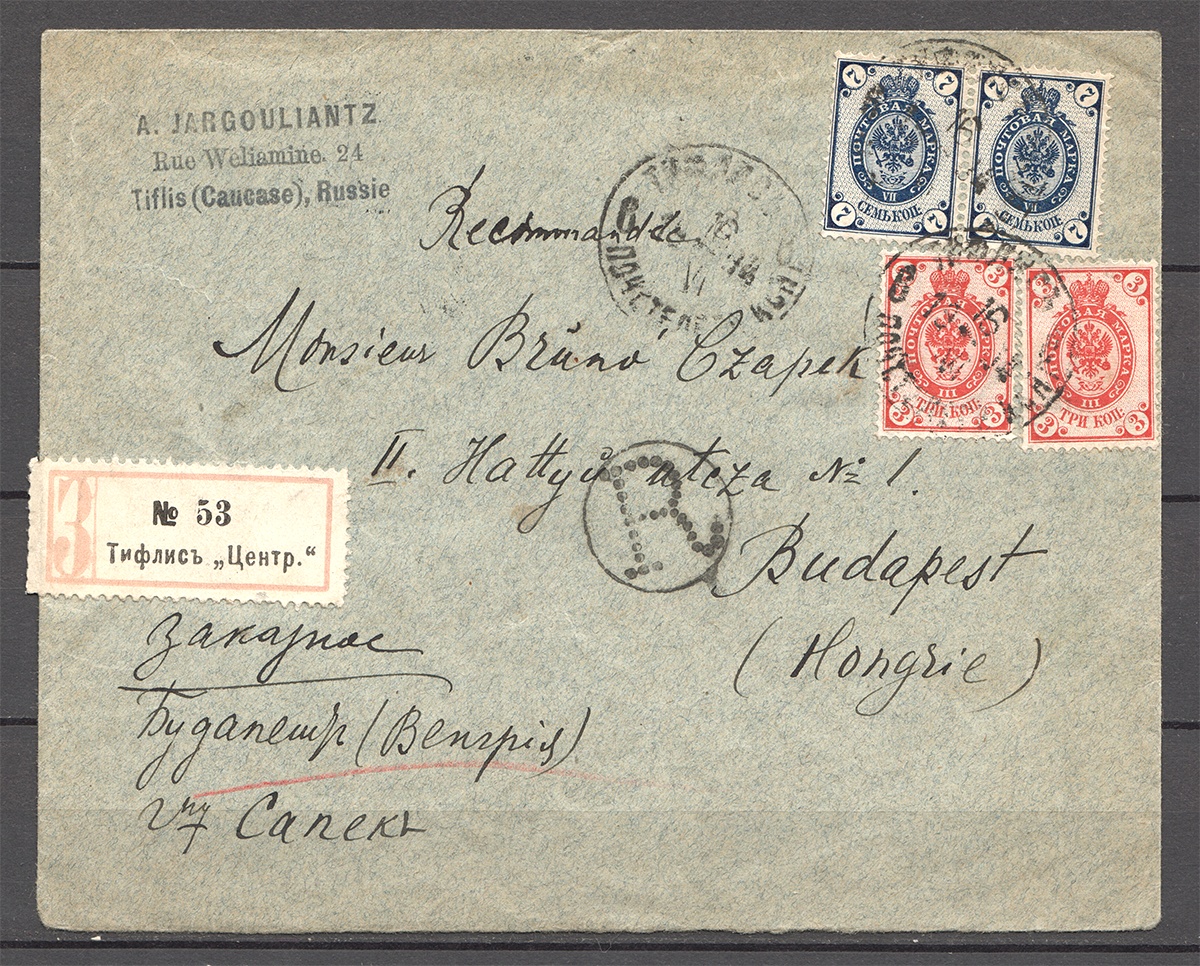 A. JARGOULIANTZ
Rue Weliamine. 24
Tiflis (Caucase), Russie
7 7
ПОЧТОВАЯ МАРКА
VII
СЕМЬ КОП.
7 7
7 7
ПОЧТОВАЯ МАРКА
VII
СЕМЬ КОП.
7 7
3 3
ПОЧТОВАЯ МАРКА
III
ТРИ КОП.
3 3
3 3
ПОЧТОВАЯ МАРКА
III
ТРИ КОП.
3 3
Recommandée
Monsieur Brúnó Czapek
II. Hattyú utcza № 1.
R
Budapest
(Hongrie)
З
№ 53
Тифлисъ „Центр.“
Заказное
Будапештъ (Венгрія)